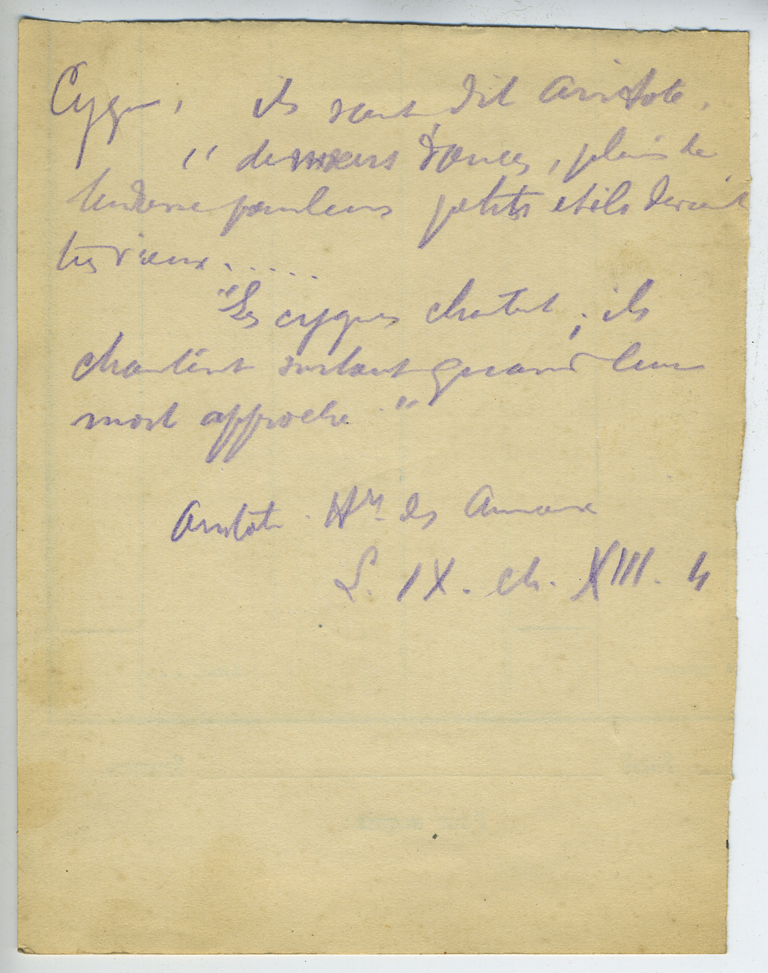 Cygne, ils sont, dit Aristote,
" de mœurs douces, pleins de
tendresse pour leurs petits et ils devienent
très vieux.....
"Les cygnes chantent ; ils
chantent surtout quand leur
mort approche "
Aristote. Hre. des Animaux
L. IX. ch. XIII. 4